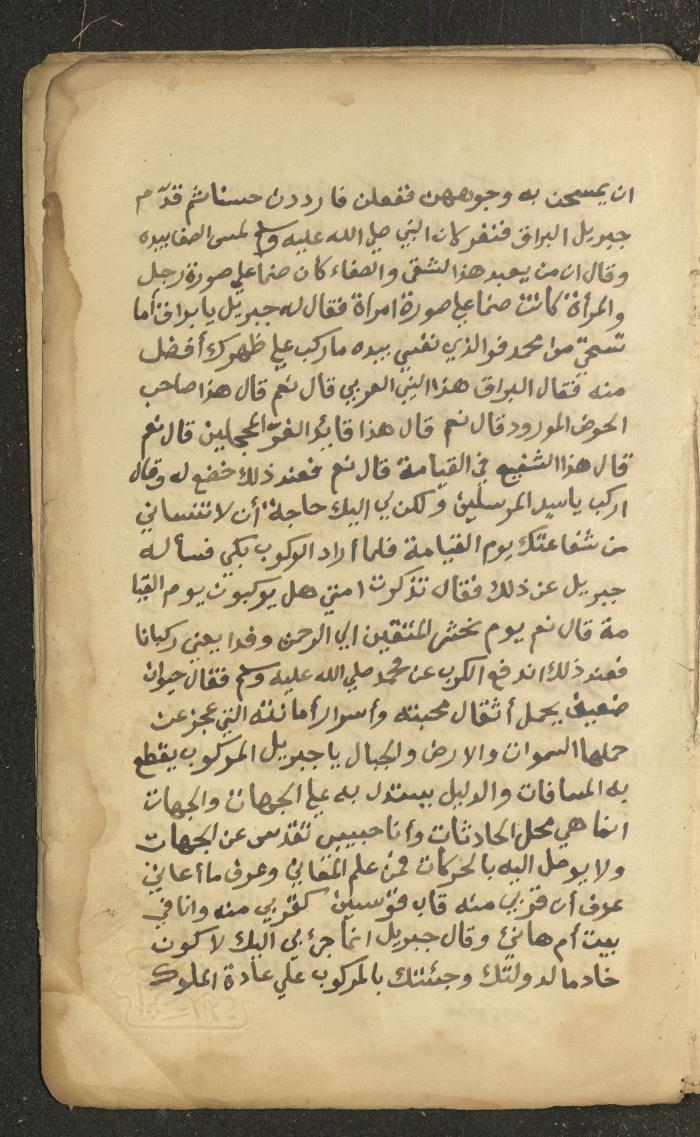 ان يمسحن به وجوههن ففعلن فازددن حسنا ثم قدّم
جبريل البراق فنفر كان النبي صلي الله عليه وسلم لمس الصفا بيده
وقال ان من يعبد هذا لشقي والصفاء كان صنما علي صورة رجل
والمرأة كانت صنما علي صورة امرأة فقال له جبريل يا براق أما
تستحيّ من محمد فوالذي نفسي بيده ما ركب علي ظهرك أفضل
منه فقال البراق هذا النبي العربي قال نعم قال هذا صاحب
الحوض المورود قال نعم قال هذا قائد الغرّ المحجلين قال نعم
قال هذا الشفيع في القيامة قال نعم فعند ذلك خضع له وقال
اركب يا سيد المرسلين ولكن لي اليك حاجة أن لا تنساني
من شفاعتك يوم القيامة فلما أراد الركوب بكي فسأله
جبريل عن ذلك فقال تذكرت امتي هل يركبون يوم القيا
مة قال نعم يوم نحشر المتقين الي الرحمن وفدا يعني ركبانا
فعند ذلك اندفع الكرب عن محمد صلي الله عليه وسلم فقال حيوان
ضعيف يحمل أثقال محبته وأسرار أمانته التي عجز عن
حملها السموات والارض والجبال يا جبريل المركوب يقطع
به المسافات والدليل يستدل به علي الجهات والجهات
انما هي محل الحادثات وأنا حبيبي تقدس عن الجهات
ولا يوصل اليه بالحركات فمن علم المعاني وعرف ما أعاني
عرف أن قربي منه قاب قوسين كقربي منه وانا في
بيت أم هانئ وقال جبريل انما جئ بي اليك لاكون
خادما لدولتك وجئتك بالمركوب علي عادة الملوك